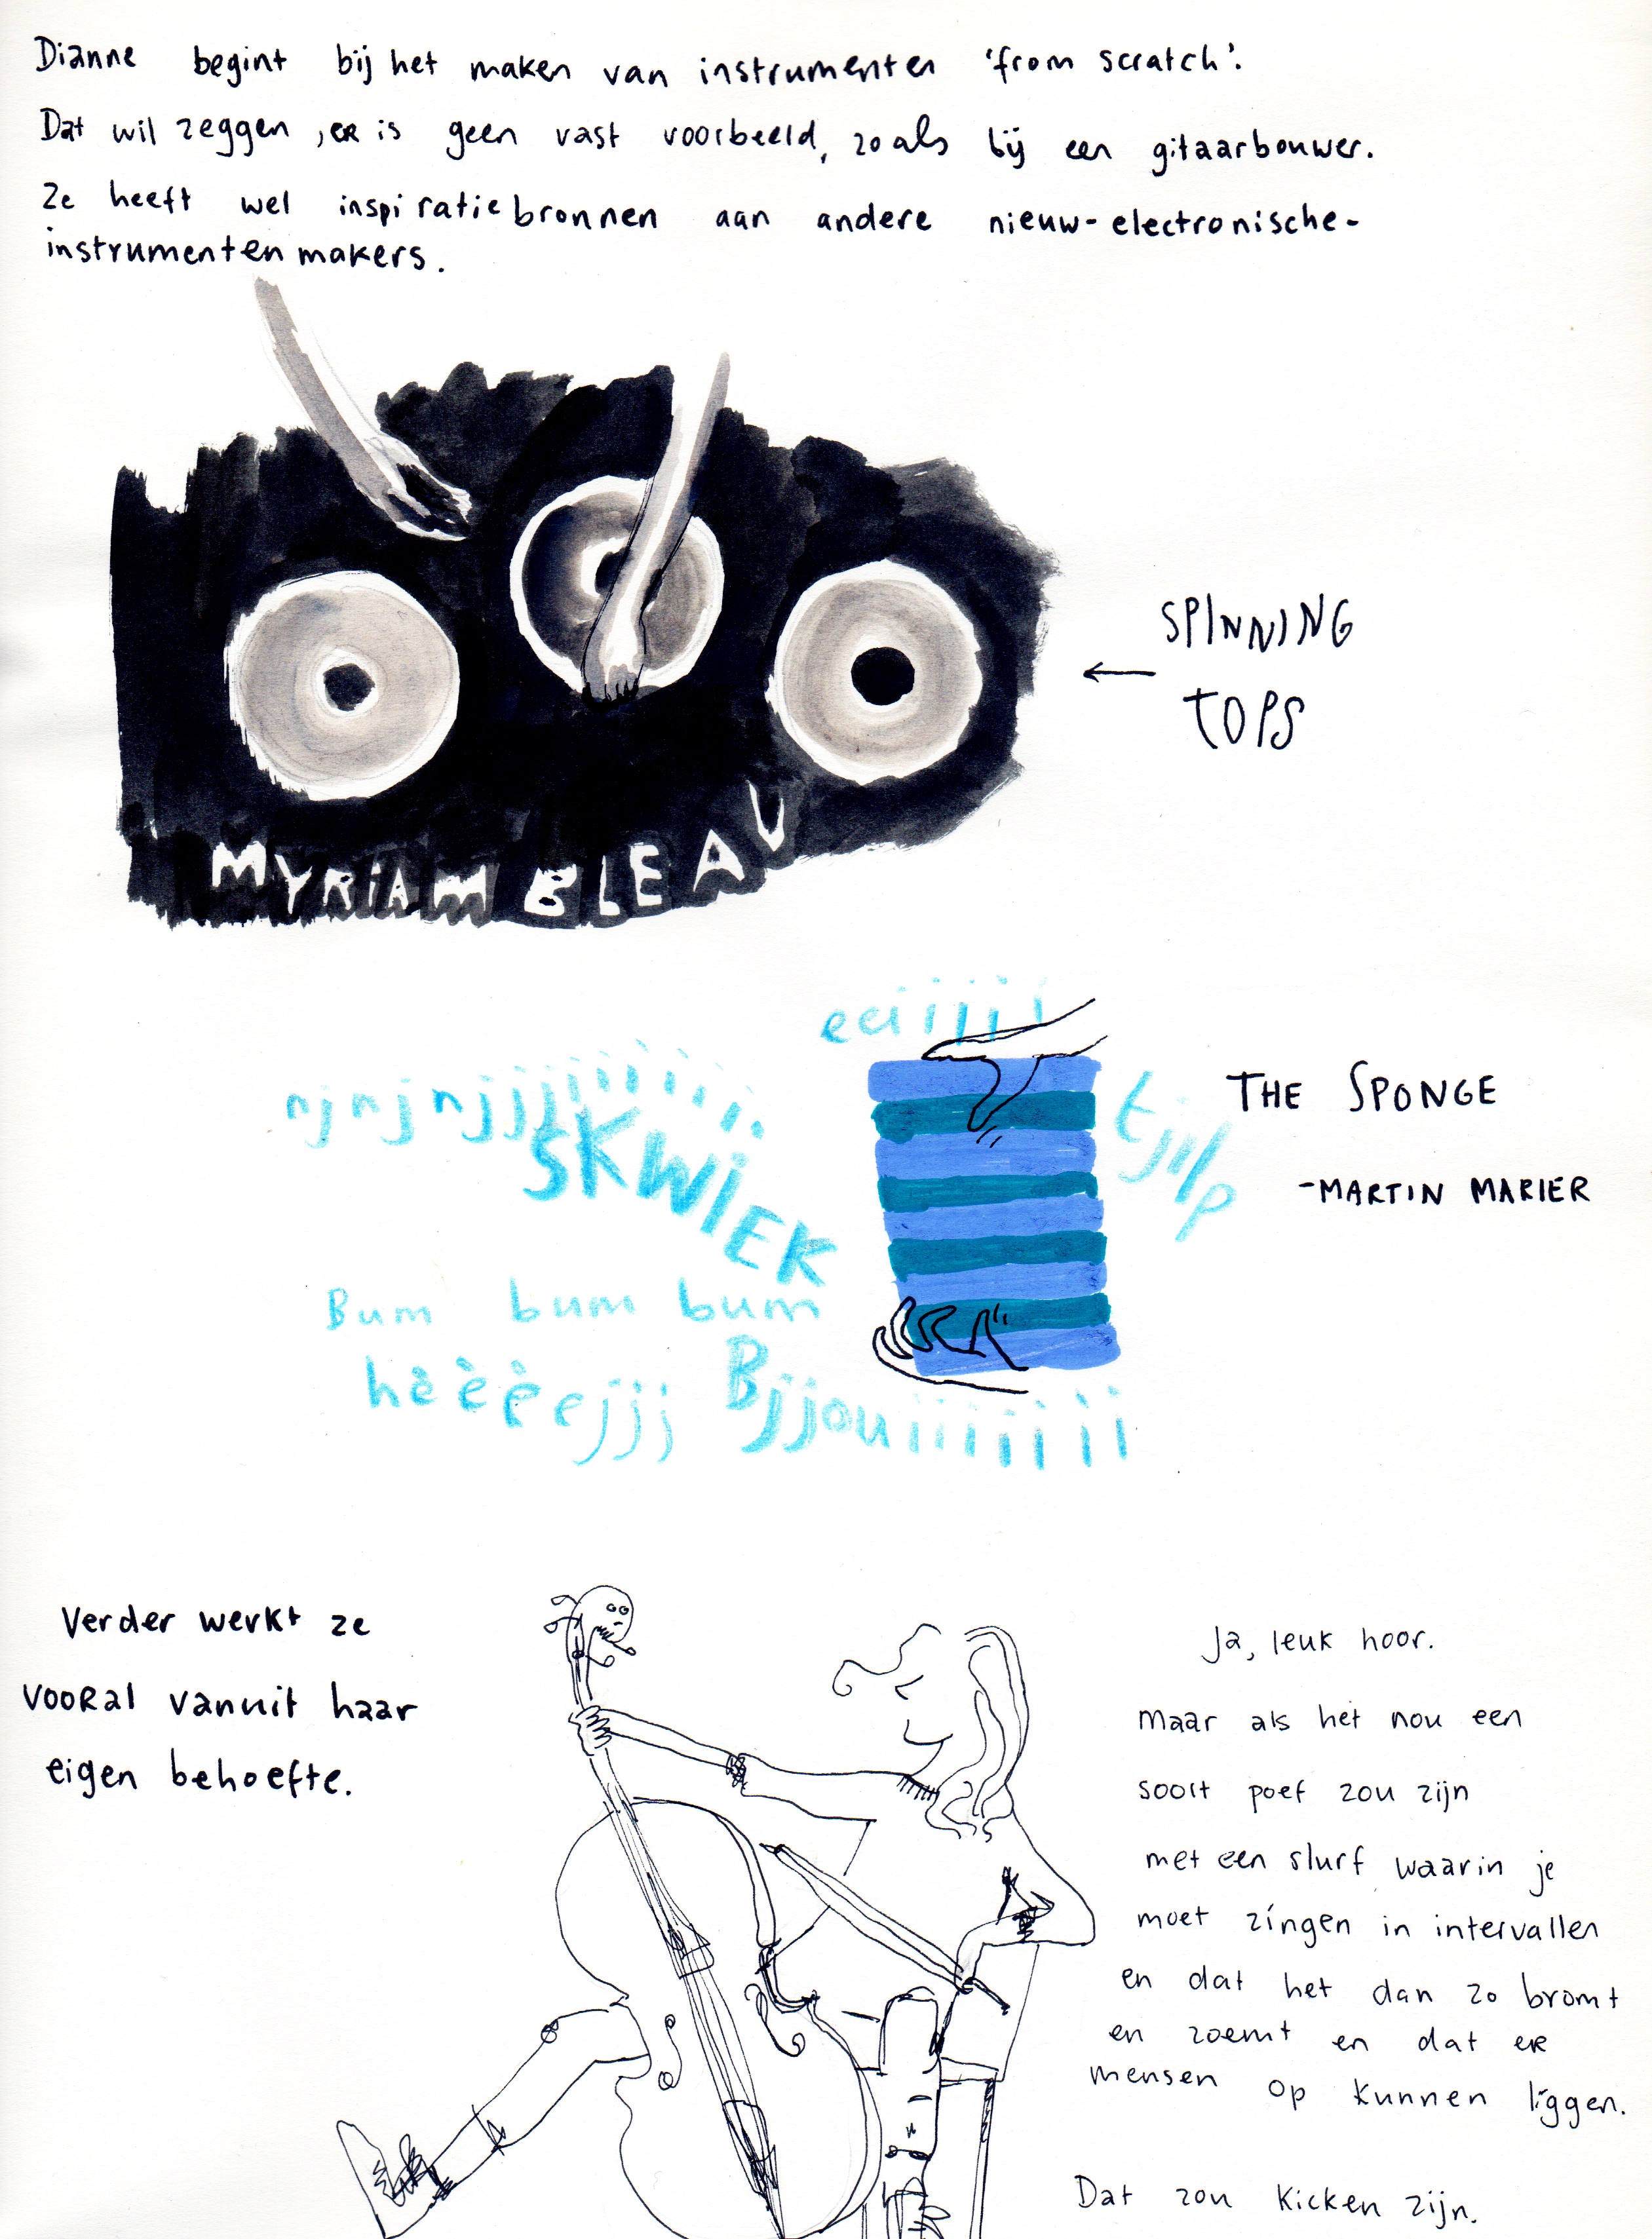 Dianne begint bij het maken van instrumenten 'from scratch'.
Dat wil zeggen, er is geen vast voorbeeld, zoals bij een gitaarbouwer.
Ze heeft wel inspiratiebronnen aan andere nieuw-electronische-
instrumentenmakers.
SPINNING
TOPS
MYRIAM BLEAU
eeiijiji
njnjnjjjjiiiiiiii
SKWIEK
tjilp
THE SPONGE
-MARTIN MARIER
Bum bum bum
hèèèejjj
Bjjouiiiiiii
Verder werkt ze
vooral vanuit haar
eigen behoefte.
Ja, leuk hoor.
maar als het nou een
soort poef zou zijn
met een slurf waarin je
moet zingen in intervallen
en dat het dan zo bromt
en zoemt en dat er
mensen op kunnen liggen.
Dat zou kicken zijn.